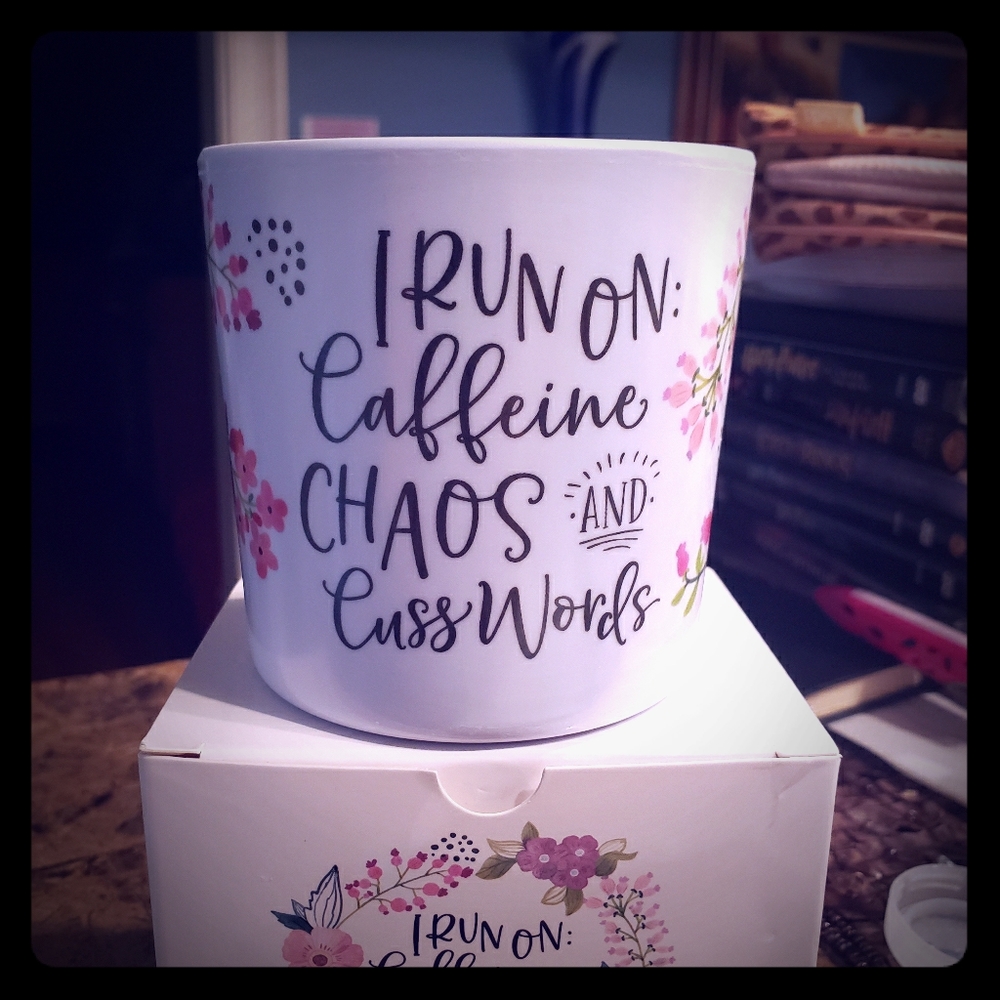 I RUN ON:
Caffeine
CHAOS AND
Cuss Words
I RUN ON: